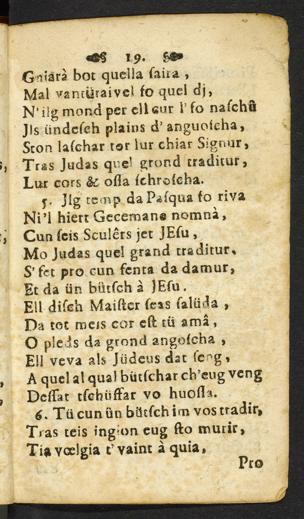 19.
Guiarà bot quella saira,
Mal vantüraivel fo quel dj,
N'ilg mond per ell cur l'fo naschü
Jls ündesch plains d'anguoscha,
Ston laschar tor lur chiar Signur,
Tras Judas quel grond traditur,
Lur cors & ossa schroscha.
5. Jlg temp da Pasqua fo riva
Ni'l hiert Gecemane nomnà,
Cun seis Sculêrs jet JEsu,
Mo Judas quel grand traditur.
S'fet pro cun fenta da damur,
Et da ün bütsch à JEsu.
Ell disch Maister seas salüda,
Da tot meis cor est tü amâ,
O pleds da grond angoscha,
Ell veva als Jüdeus dat seng,
A quel al qual bütschar ch'eug veng
Dessat tschüffar vo huossa.
6. Tü cun ün bütsch im vos tradir,
Tras teis ingion eug sto murir,
Tia vœlgia t'vaint à quia,
Pro